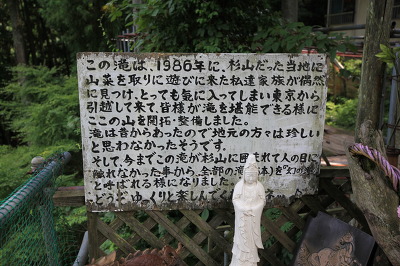 この滝は、1986年に、杉山だった当地に
山菜を取りに遊びに来た私達家族が偶然
に見つけ、とっても気に入ってしまい東京から
引越して来て、皆様が滝を堪能できる様に
ここの山を開拓・整備しました。
滝は昔からあったので地元の方々は珍しい
と思わなかったそうです。
そして、今までこの滝が杉山に囲まれて人の目に
触れなかった事から、全部の滝(本)を"幻の
と呼ばれる様になりました。
どうぞ、ゆっくりと楽しんで